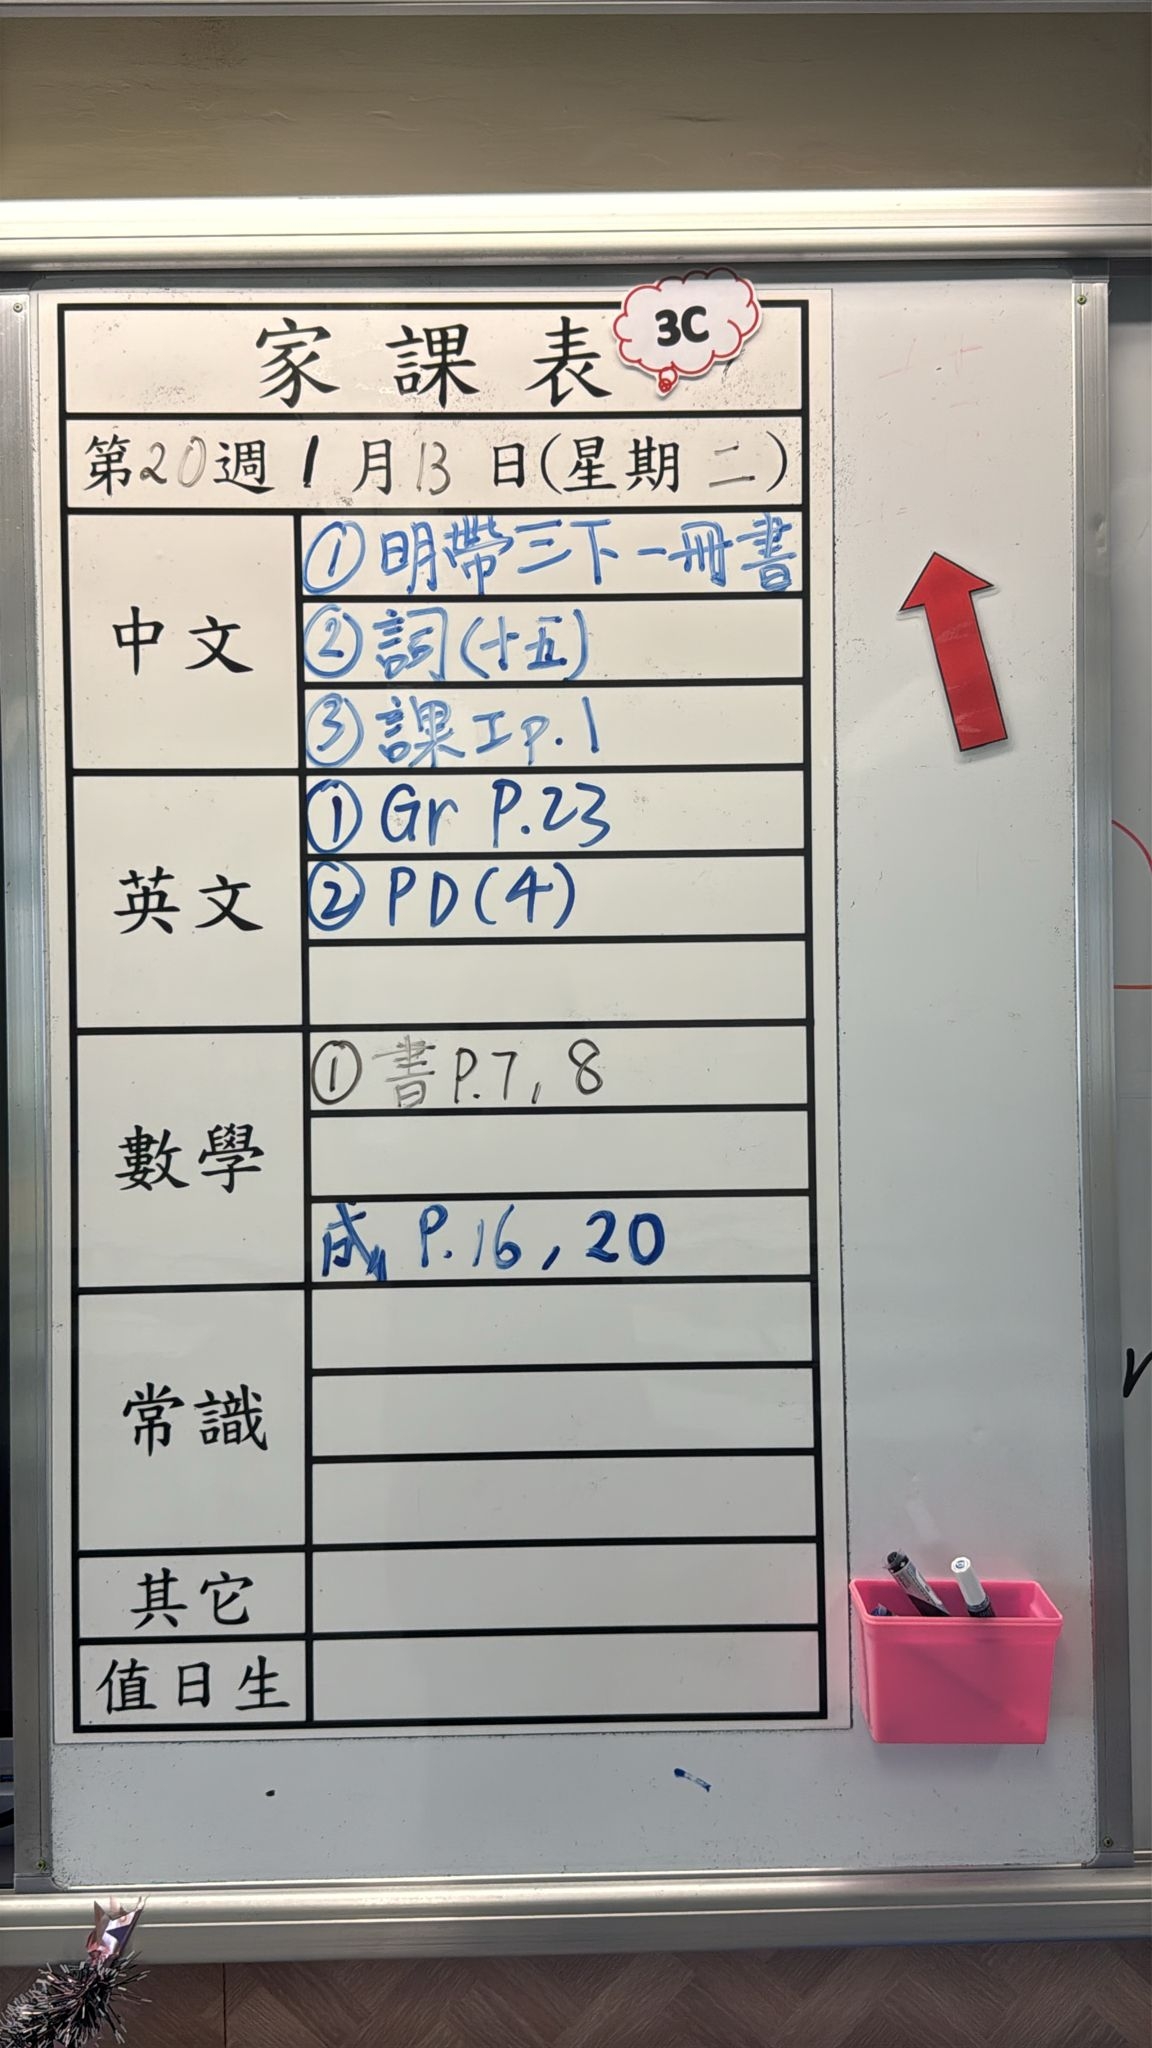 家課表
3C
第20週 1月13日(星期二)
中文
①明帶三下一冊書
②詞(十五)
③課工p.1
英文
①Gr P.23
②PD(4)
數學
①書P.7, 8
P.16, 20
常識
其它
值日生